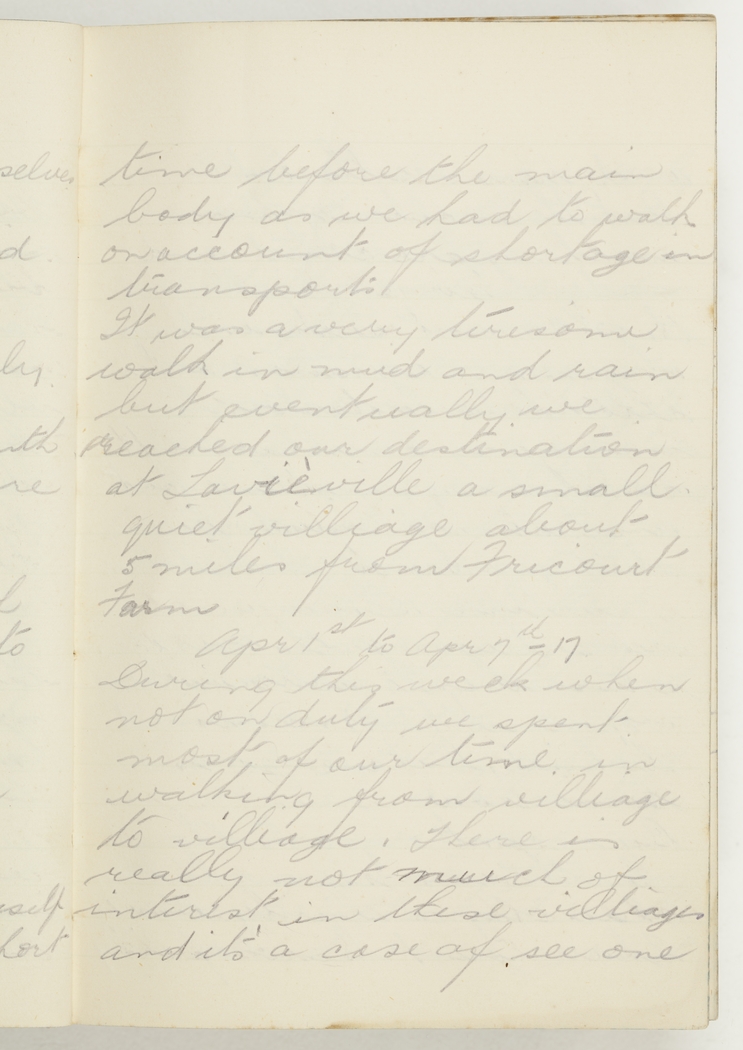 time before the main
body as we had to walk
on account of shortage in
transports
It was a very tiresome
walk in mud and rain
but eventually we
reached our destination
at Lavièville a small
quiet villiage about
5 miles from Fricourt
Farm
Apr 1st to Apr 7th-17
During this week when
not on duty we spent
most of our time in
walking from villiage
to villiage. There is
really not much of
interest in these villiages
and it's a case of see one